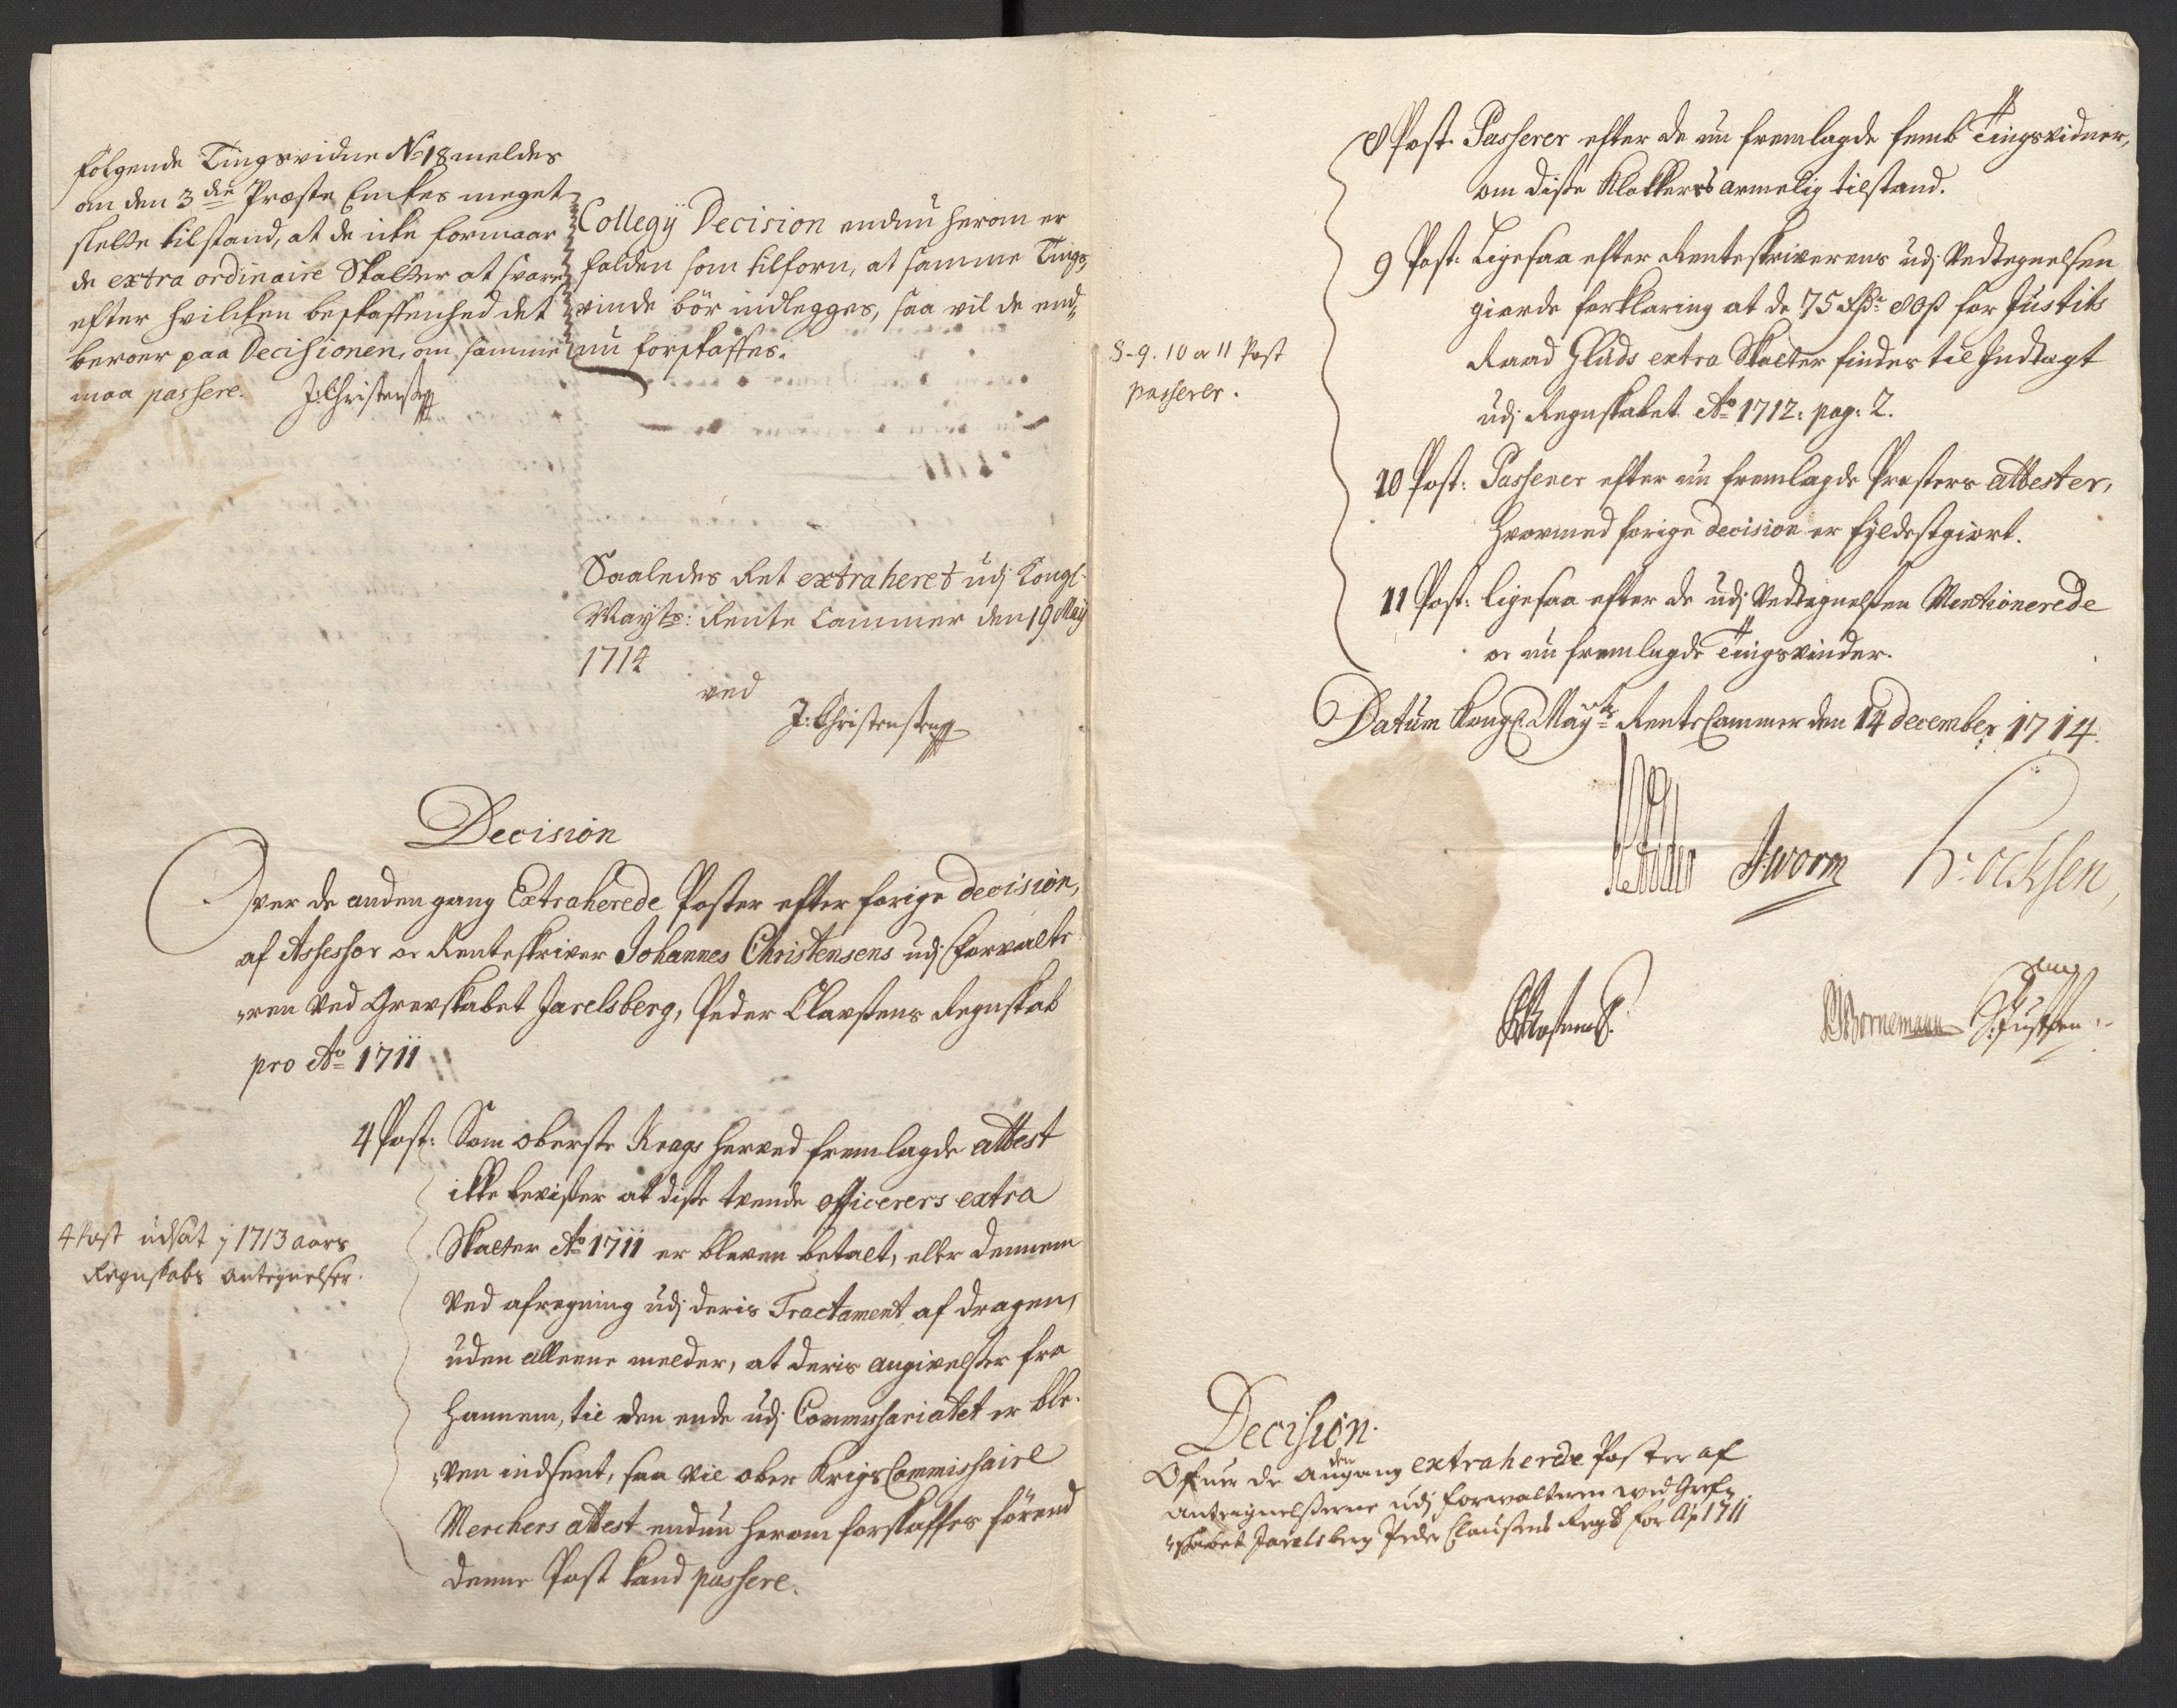 følgende Tingsvidne No 18 meldes
om den 3die Præste Enkes meget
slette tilstand, at de icke formaar
de extra ordinaire Skatter at svare
efter hvilcken beskaffenhed det
beroer paa Decisionen, om samme
maa passere. J: Christensen
Collegij Decision endnu herom er
falden som tilforn, at samme Tings¬
vinde bör indlegges, saa vil de end¬
nu forskaffes.
Saaledes Ret extraheret udj Kongl:
Mayts: Rente Cammer den 19 Maij
1714
ved
J: Christensen
Decision
Over de anden gang Extraherede Poster efter forige decision,
af Assessor oc Renteskriver Johannes Christensens udj forvalte¬
ren ved Grevskabet Jarelsberg, Peder Clausens Regnskab
pro Ao 1711
4 Post: Som oberste Krags herved fremlagde attest
ikke beviser at disse tvende officerers extra
Skatter Ao 1711 er bleven betalt, eller dennem
ved afregning udj deris Tractament af dragen,
uden alleene melder, at deris angivelser fra
hannem, til den ende udj Commissariatet er ble¬
ven indsent, saa vil ober KrigsCommissaire
Merchers attest endnu herom forskaffes förend
denne Post kand passere.
4 Post udsat j 1713 aars
Regnskabs antegnelser.
8 Post: Passerer efter de nu fremlagde femb Tingsvidner,
om disse Klokkers armelig tilstand.
9 Post: Ligesaa efter Renteskriverens udj Vedtegnelsen
giorde forklaring at de 75 Rdr 80 s for Justits
Raad Gluds extra Skatter findes til Indtægt
udj Regnskabet Ao 1712: pag: 2.
10 Post: Passerer efter nu fremlagde Presters attester,
hvormed forige decision er fyldestgiort.
11 Post: Ligesaa efter de udj Vedtegnelsen Mentionerede
oc nu fremlagde Tingsvinder.
8-9. 10 oc 11 Post
passerer.
Datum Kongl. Mayts RenteCammer den 14 december 1714.
JWorm
Bornemann
Decision.
Ofuer de anden gang extraherede Poster af
antegnelserne udj forvalteren ved Gref¬
skabet Jarelsberg Peder Clausens Regsk for Ao 1711